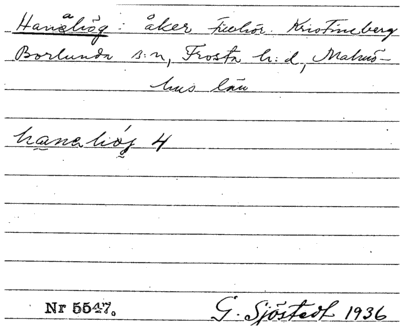 Hanahög: åker tillhör. Kristineberg
Borlunda s:n, Frosta h:d, Malmö-
hus län
hanahög 4
Nr 5547. G. Sjöstedt 1936